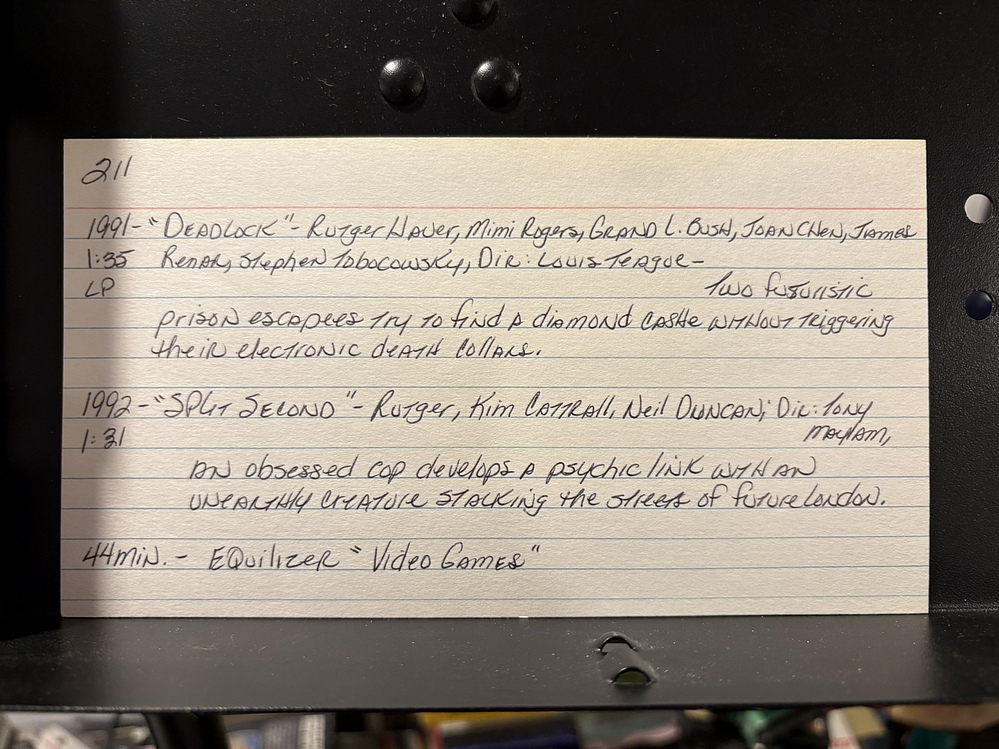 211
1991- "DEADLOCK" - RUTGER HAUER, Mimi Rogers, GRAND L. BUSH, JOAN CHEN, JAMES
1:35 Remar, Stephen Tobocowsky, Dir: Louis Teague -
LP Two futuristic
prison escapees try to find a diamond cashe without triggering
their electronic death collars.
1992 - "SPLIT SECOND" - Rutger, Kim Cattrall, Neil Duncan; Dir: Tony
1:31 Maylam,
an obsessed cop develops a psychic link with an
unearthly creature stalking the streets of future London.
44 min. - EQuilizer "Video Games"